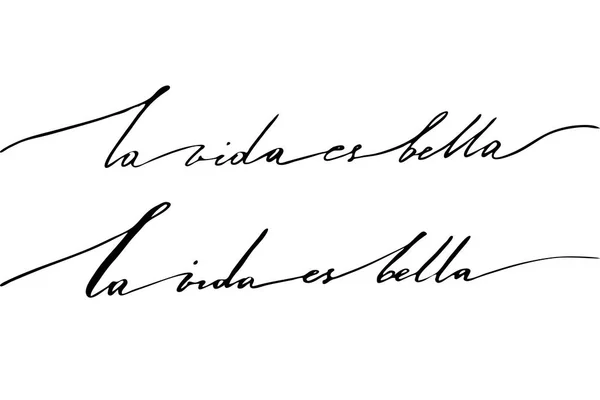 la vida es bella
la vida es bella